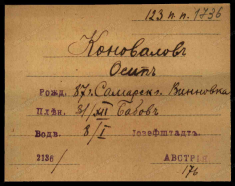 123 п.п. 1736
Коноваловъ
Осипъ
Рожд. 87 г. Самарск. г. Винновка
Плѣн. 3/XII Бабовъ
Водв. 8/I Іозефштадтъ.
2136/ АВСТРІЯ
176